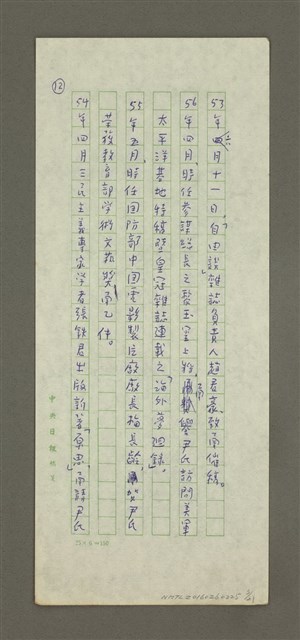 ⑫
53年六月十一日,「自由談」雜誌負責人趙君豪敬函催綠。
56年四月,時任參謀總長之黎玉璽上將,函覆尹氏訪問美軍
太平洋基地特綠暨皇冠雜誌連載之「海外夢迴錄」。
55年五月,時任國防部中國電影製片廠廠長梅長齡,函賀尹氏
榮獲教育部學術文藝獎函乙件。
54年四月三民主義專家學者張鐵君出版新著「原思」,函請尹氏
中央日報稿頁
NMTL20160260225